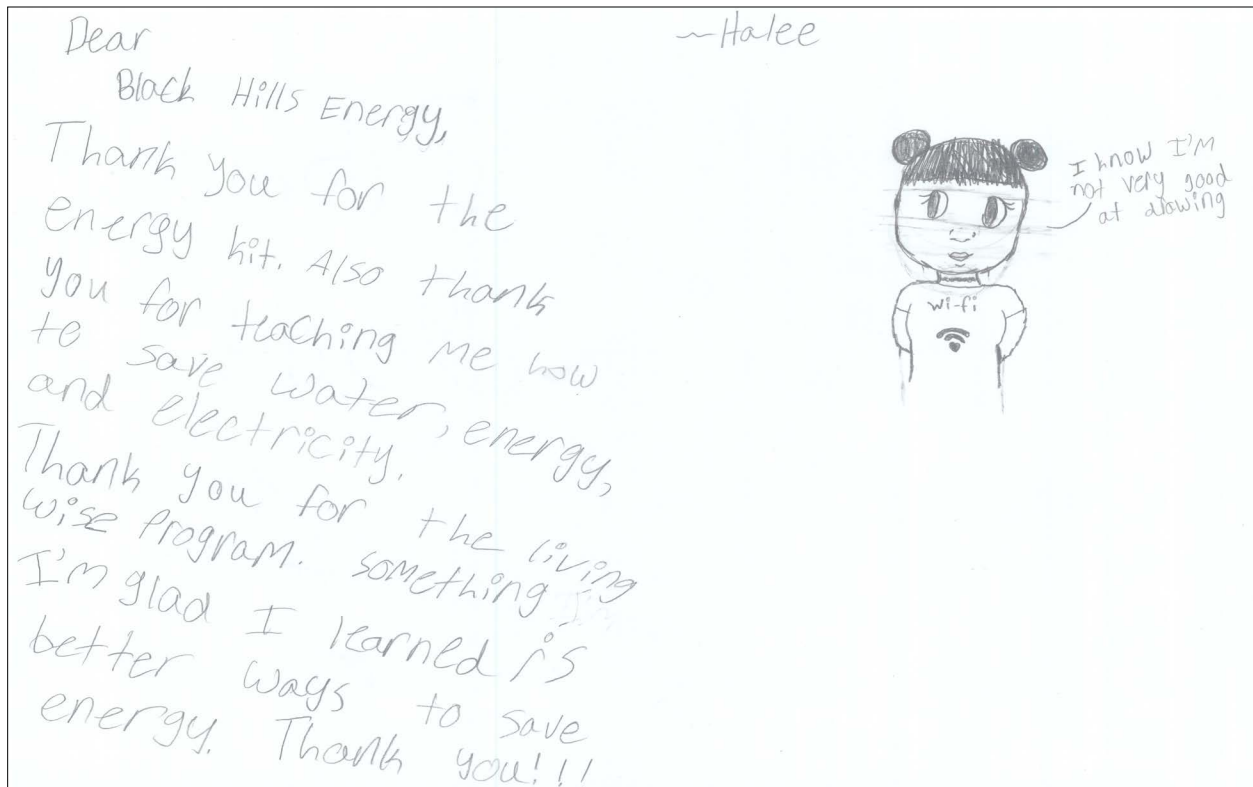 Dear
Black Hills Energy,
Thank you for the
energy kit. Also thank
you for teaching me how
to save water, energy,
and electricity.
Thank you for the living
wise Program. something
I'm glad I learned is
better ways to save
energy. Thank you!!!
~Halee
I know I'm
not very good
at drowing
wi-fi